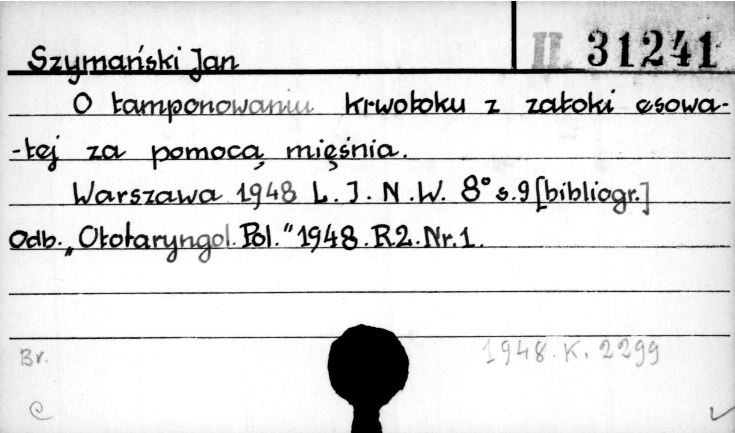 II. 31241
Szymański Jan
O tamponowaniu krwotoku z zatoki esowa-
-tej za pomocą mięśnia.
Warszawa 1948 L. I. N. W. 8° s. 9 [bibliogr.]
Odb. „Otolaryngol. Pol." 1948. R2. Nr. 1.
Br.
1948. K. 2299
C